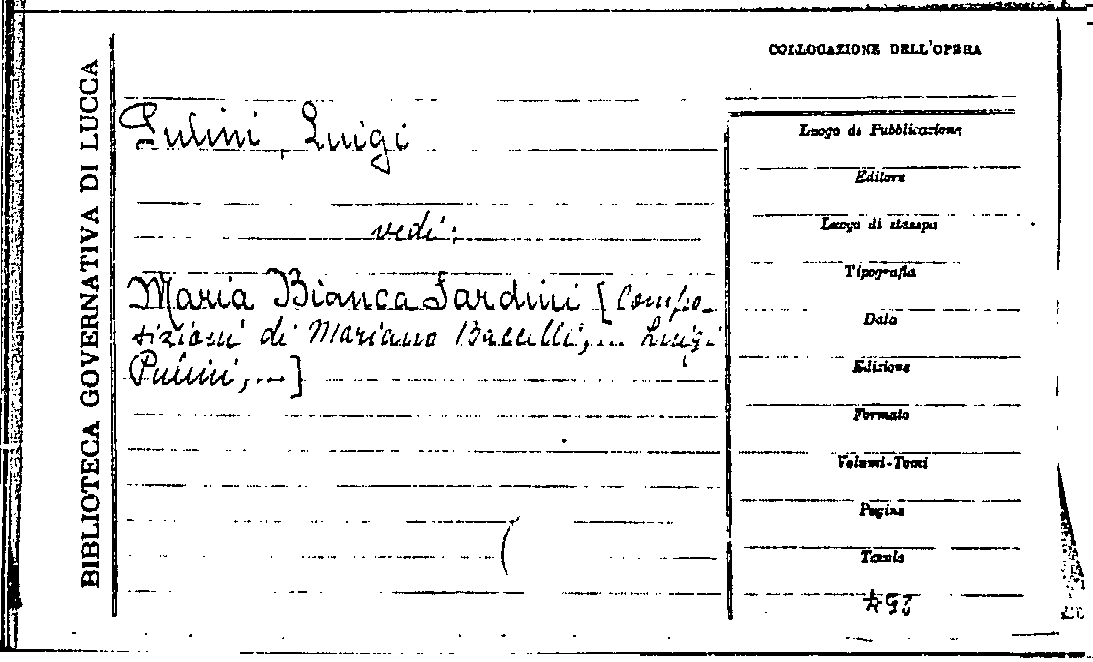 BIBLIOTECA GOVERNATIVA DI LUCCA
Pulini, Luigi
vedi:
Maria Bianca Sardini [Compo-
sizioni di Mariano Baccelli,... Luigi
Pulini,...]
COLLOCAZIONE DELL'OPERA
Luogo di Pubblicazione
Editore
Luogo di stampa
Tipografia
Data
Edizione
Formato
Volumi-Tomi
Pagine
Tavole